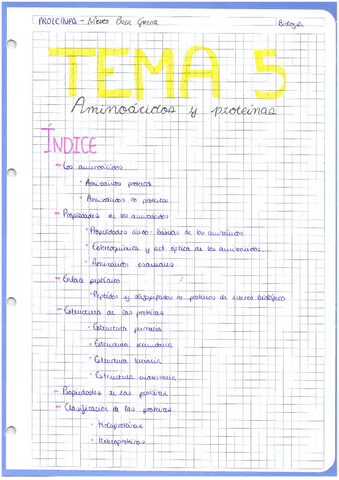 PROTEÍNAS - Nieves Baca Guerra
Biología
TEMA 5
Aminoácidos y proteínas
ÍNDICE
- Los aminoácidos
• Aminoácidos proteicos
• Aminoácidos no proteicos
- Propiedades de los aminoácidos
• Propiedades ácido-básicas de los aminoácidos
• Estereoquímica y act. óptica de los aminoácidos
• Aminoácidos esenciales
- Enlace peptídico
• Péptidos y oligopéptidos no proteicos de interés biológico
- Estructura de las proteínas
• Estructura primaria
• Estructura secundaria
• Estructura terciaria
• Estructura cuaternaria
- Propiedades de las proteínas
- Clasificación de las proteínas
• Holoproteínas
• Heteroproteínas